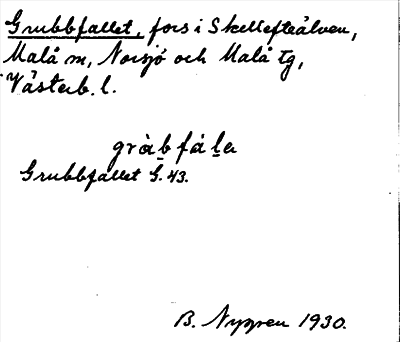 Grubbfallet, fors i Skellefteälven,
Malå sn, Norsjö och Malå tg,
Västerb. l.
gràb fál̲a
Grubbfallet G. 43.
B. Nygren 1930.